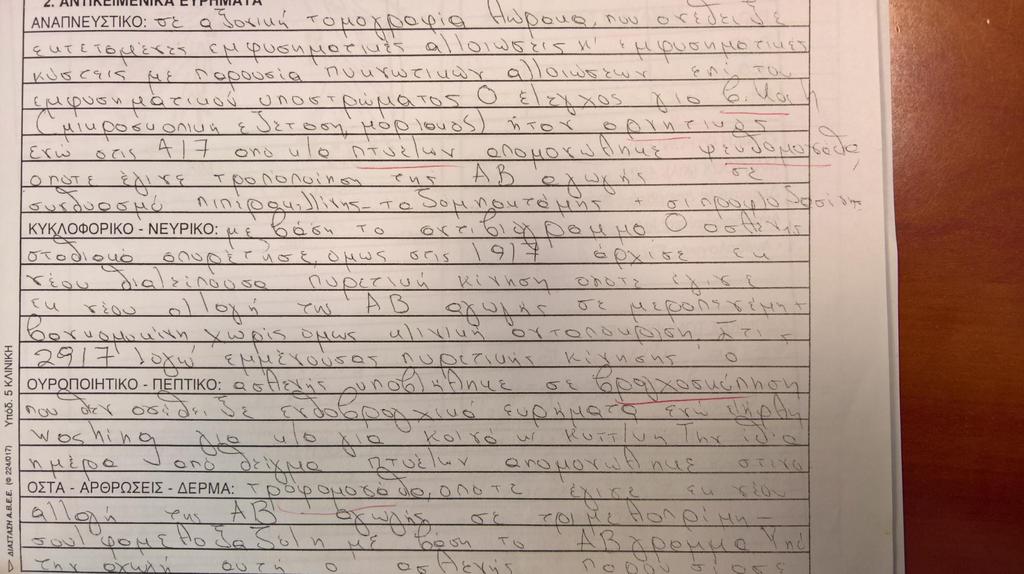 2. ΑΝΤΙΚΕΙΜΕΝΙΚΑ ΕΥΡΗΜΑΤΑ
ΑΝΑΠΝΕΥΣΤΙΚΟ: σε αξονική τομογραφία θώρακα, που ανέδειξε
εκτεταμένες εμφυσηματικές αλλοιώσεις κ' εμφυσηματικές
κύστεις με παρουσία πυκνωτικών αλλοιώσεων επί του
εμφυσηματικού υποστρώματος Ο έλεγχος για β. Koch
(μικροσκοπική εξέταση, μοριακός) ήταν αρνητικός
ενώ στις 4/7 από κ/α πτυέλων απομονώθηκε ψευδομονάδα
οποτε έγινε τροποποίηση της ΑΒ αγωγής σε
συνδυασμό πιπερακιλλίνης-ταζομπακτάμης + σιπροφλοξασίνη
ΚΥΚΛΟΦΟΡΙΚΟ - ΝΕΥΡΙΚΟ: με βάση το αντιβιόγραμμα Ο ασθενής
σταδιακά απυρέτησε, ομως στις 19/7 άρχισε εκ
νέου διαλείπουσα πυρετική κίνηση οποτε έγινε
εκ νέου αλλαγή της ΑΒ αγωγής σε μεροπενέμη +
βανκομυκίνη χωρίς ομως κλινική ανταπόκριση. Στις
29/7 λογω εμμένουσας πυρετικής κίνησης ο
ΟΥΡΟΠΟΙΗΤΙΚΟ - ΠΕΠΤΙΚΟ: ασθενής υποβλήθηκε σε βρογχοσκόπηση
που δεν ανέδειξε ενδοβρογχικά ευρήματα ενώ ελήφθη
washing για κ/α για κοινά κ' κυττ/κη Την ίδια
ημέρα από δείγμα πτυέλων απομονώθηκε στενο
ΟΣΤΑ - ΑΡΘΡΩΣΕΙΣ - ΔΕΡΜΑ: τροφομονάδα, οποτε έγινε εκ νέου
αλλαγή της ΑΒ αγωγής σε τριμεθοπρίμη-
σουλφαμεθοξαζόλη με βάση το ΑΒγραμμα Υπό
την αγωγή αυτή ο ασθενής παρουσίασε
▷ ΔΙΑΣΤΑΣΗ Α.Β.Ε.Ε. (Θ 224/017) Υποδ. 5 ΚΛΙΝΙΚΗ